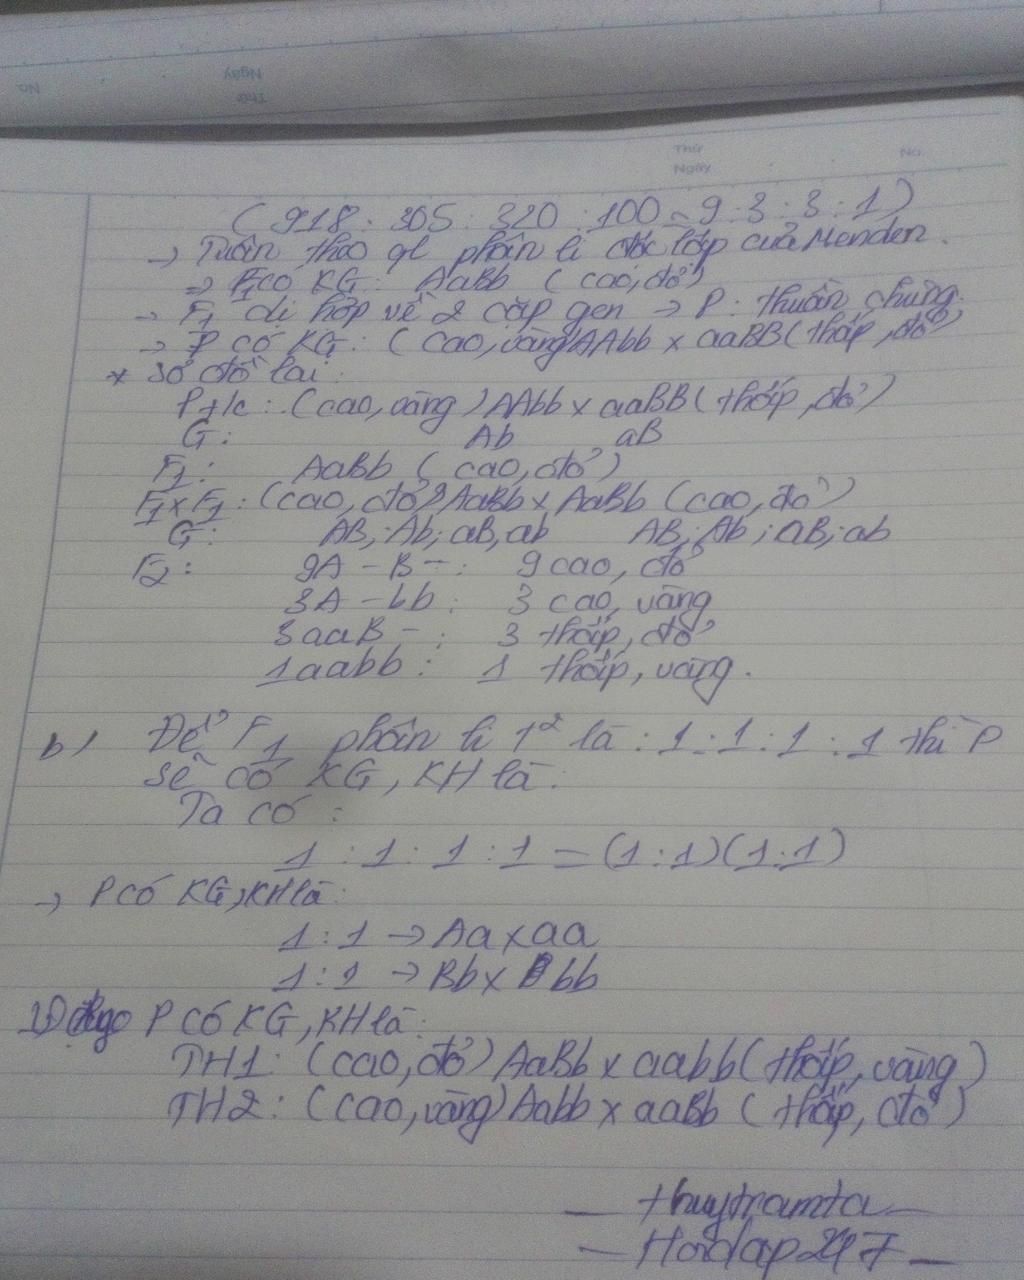 No.
Thứ
Ngày
Thứ
Ngày
No.
(918 : 305 : 320 : 100 ~ 9 : 3 : 3 : 1)
→ Tuân theo ql phân li độc lập của Menden.
=> F1 có KG: AaBb (cao, đỏ)
→ F1 dị hợp về 2 cặp gen → P: thuần chủng.
→ P có KG: (cao, vàng) AAbb x aaBB (thấp, đỏ)
* Sơ đồ lai:
Pt/c: (cao, vàng) AAbb x aaBB (thấp, đỏ)
G: Ab aB
F1: AaBb (cao, đỏ)
F1 x F1: (cao, đỏ) AaBb x AaBb (cao, đỏ)
G: AB; Ab; aB; ab AB; Ab; aB; ab
F2: 9A-B-: 9 cao, đỏ
3A-bb: 3 cao, vàng
3aaB-: 3 thấp, đỏ
1aabb: 1 thấp, vàng.
b) Để F1 phân li t² là: 1 : 1 : 1 : 1 thì P
sẽ có KG, KH là:
Ta có:
1 : 1 : 1 : 1 = (1 : 1)(1 : 1)
→ P có KG, KH là:
1 : 1 → Aa x aa
1 : 1 → Bb x bb
P có KG, KH là:
TH1: (cao, đỏ) AaBb x aabb (thấp, vàng)
TH2: (cao, vàng) Aabb x aaBb (thấp, đỏ)
— thuytramta —
— Hoidap247 —